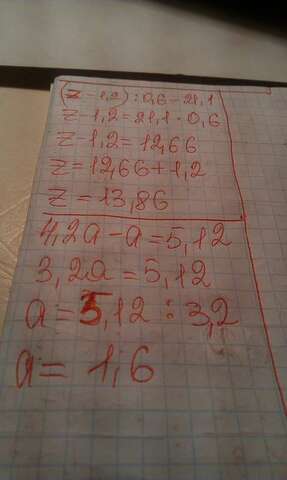 (z-1,2):0,6=21,1
z-1,2=21,1·0,6
z-1,2=12,66
z=12,66+1,2
z=13,86
4,2a-a=5,12
3,2a=5,12
a=5,12:3,2
a=1,6